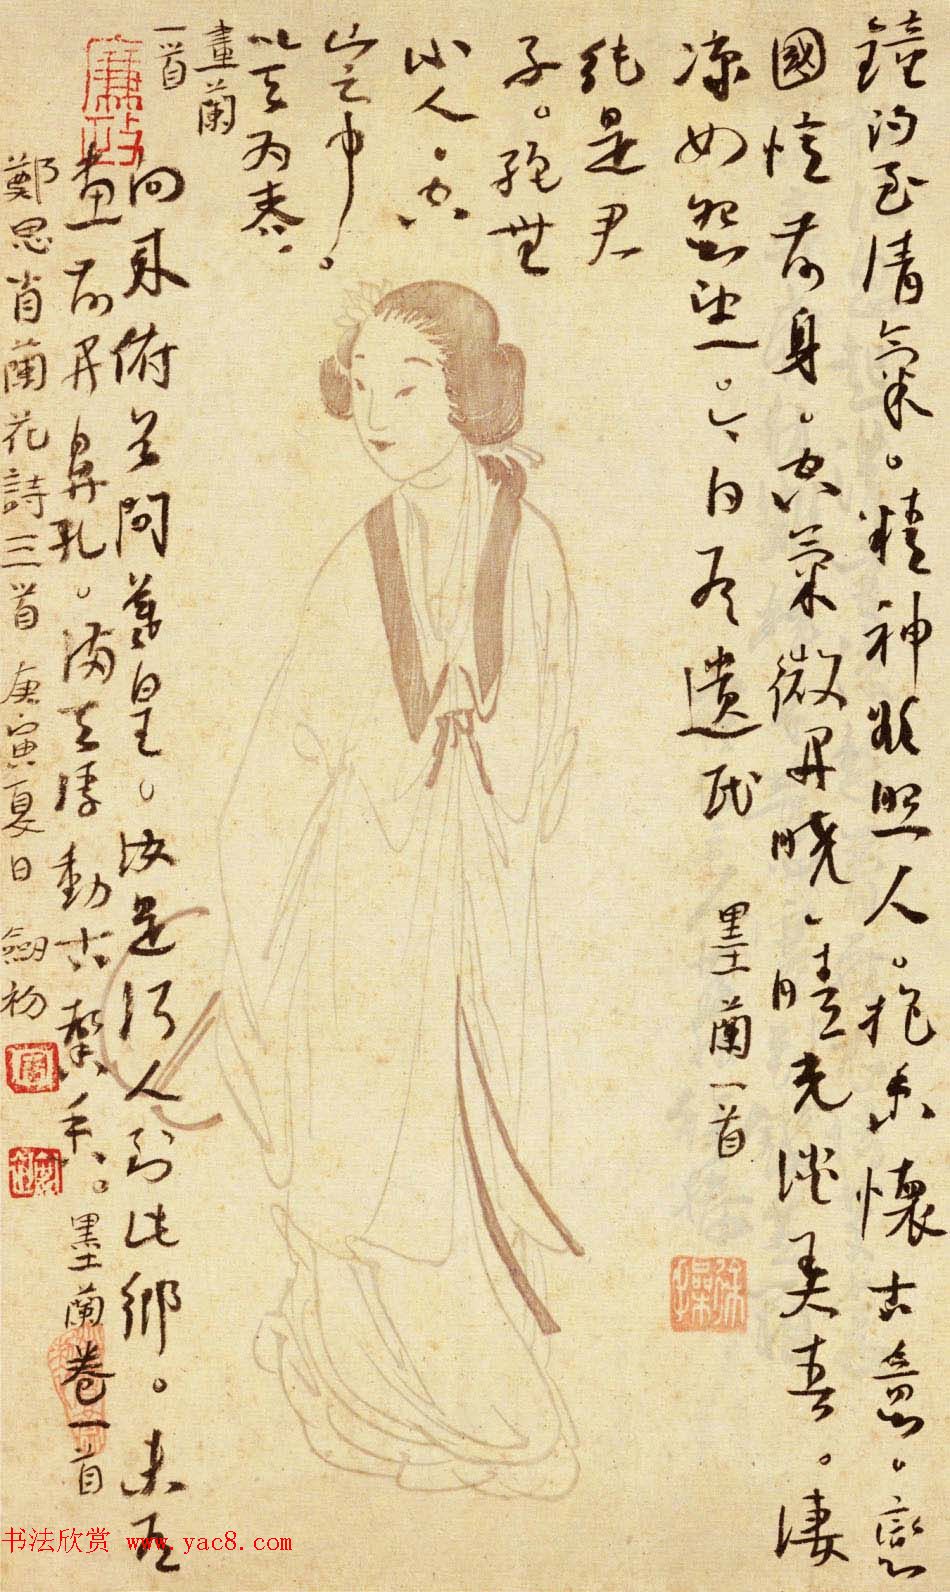 鐘得至清氣。精神欲照人。抱香懷古意。戀
國憶前身。空氣微開曉。晴光淡美春。淒
凉如怨望。今日有遺民 墨蘭一首
純是君
子。絕無
小人。空
山之中。
以天為春。
畫蘭
一首
向來俯首問羲皇。汝是何人到此鄉。未有
畫前開鼻孔。滿天浮動古馨香。墨蘭卷一首
鄭思肖蘭花詩三首 庚寅夏日 劍初
徐操
书法欣赏 www.yac8.com